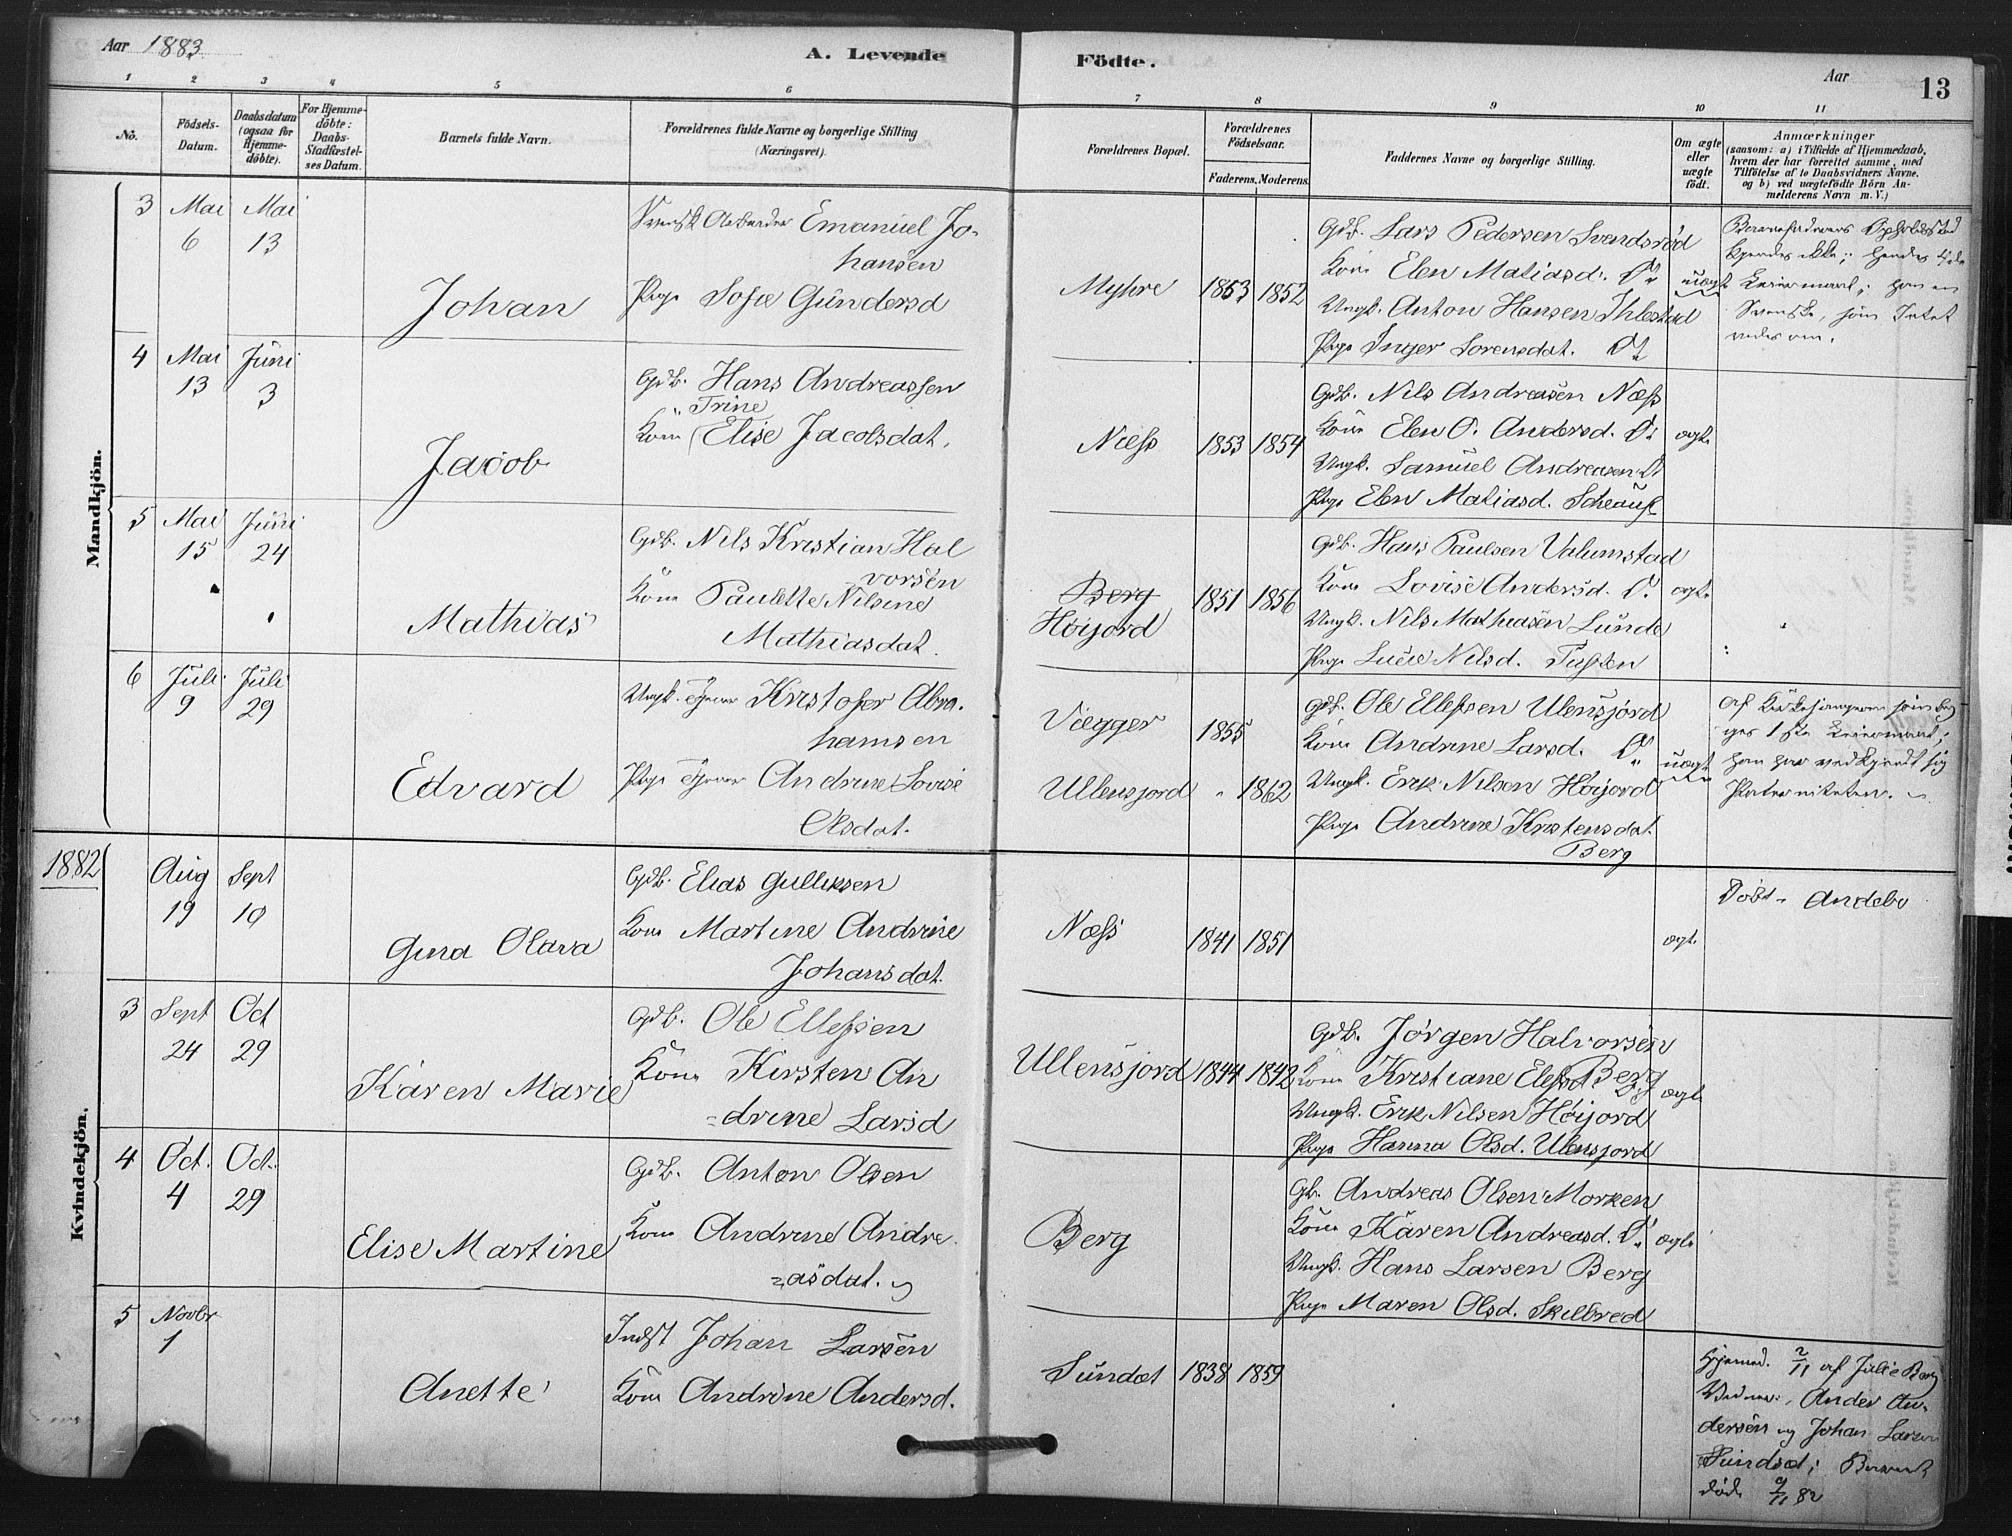 Aar 1883
A. Levende
Födte.
Aar
13
1 2 3 4 5 6 7 8 9 10 11
No.
Födsels-Datum.
Daabsdatum (ogsaa for Hjemme-döbte).
For Hjemme-döbte: Daabs-Stadfæstel-ses Datum.
Barnets fulde Navn.
Forældrenes fulde Navne og borgerlige Stilling (Næringsvei).
Forældrenes Bopæl.
Forældrenes Födselsaar.
Faderens. Moderens.
Faddernes Navne og borgerlige Stilling.
Om ægte eller uægte födt.
Anmærkninger
(saasom: a) i Tilfælde af Hjemmedaab, hvem der har forrettet samme, med Tilföielse af to Daabsvidners Navne. og b) ved uægtefödte Börn An-melderens Navn m.V.)
Mandkjön.
3 Mai 6 Mai 13
Johan
Svensk Emanuel Jo-
hansen
Pige Sofie Gundersd
Myhre 1853 1852
Gdb. Lars Pedersen Svendsrød
Kone Elen Matiasd. Do
Ungk. Anton Hansen Ihlestad
Pige Inger Sorensdat. Do
uægt
Barnefaderens Opholdssted
kjendes ikke; hendes
Leiermaal; han en
Svenske, som Intet
vides om.
4 Mai 13 Juni 3
Jacob
Gdb. Hans Andreassen
Trine
Kone Elise Jacobsdat.
Næss 1853 1854
Gdb. Nils Andreasen Næss
Kone Elen O. Andersd. Do
Ungk. Samuel Andreasen Do
Pige Elen Matiasd.
ægte
5 Mai 15 Juni 24
Mathias
Gdb. Nils Kristian Hal
vorsen
Kone Paulette Nilsine
Mathiasdat.
Berg
Höijord 1851 1856
Gdb. Hans Paulsen Valumstad
Kone Lovise Andersd. Do
Ungk. Nils Mathiasen Lunde
Pige Nilsd.
ægte
6 Juli 9 Juli 29
Edvard
Ungk. Tjener Kristofer Abra-
hamsen
Pige Tjener Andrine Lovise
Olsdat.
Vegger 1855
Ullensjord " 1862
Gdb. Ole Ellefsen Ulensjord
Kone Andrine Larsd. Do
Ungk. Erik Nilsen Höijord
Pige Andrine Kristensdat.
Berg
uægte
af Kirkesangeren
1ste Leiermaal;
han har vedkjendt sig
Paterniteten.
1882
Kvindekjön.
Aug 19 Sept 10
Gina Olava
Gdb. Elias Gulliksen
Kone Martine Andrine
Johansdat.
Næss 1841 1851
ægt.
Döbt. Andebu
3 Sept 24 Oct 29
Karen Marie
Gdb. Ole Ellefsen
Kone Kirsten An
=drine Larsd
Ullensjord 1844 1842
Gdb. Jörgen Halvorsen
Kone Kristiane Elefsd Berg
Ungk. Erik Nilsen Höijord
Pige Hanna Olsd. Ulensjord
ægte
4 Oct. 4 Oct. 29
Elise Martine
Gdb. Anton Olsen
Kone Andrine Andre
=asdat.
Berg
Gb. Andreas Olsen Morken
Kone Karen Andreasd. Do
Ungk. Hans Larsen Berg
Pige Maren Olsd. Skilbred
ægte
5 Novbr 1
Anette
Indst Johan Larsen
Kone Andrine Andersd.
Sundet 1838 1859
Hjemmed. 2/11 af Julie Berg
Vidner: Anders An-
dersen og Johan Larsen
Sundet; Barnet
död 9/11 82